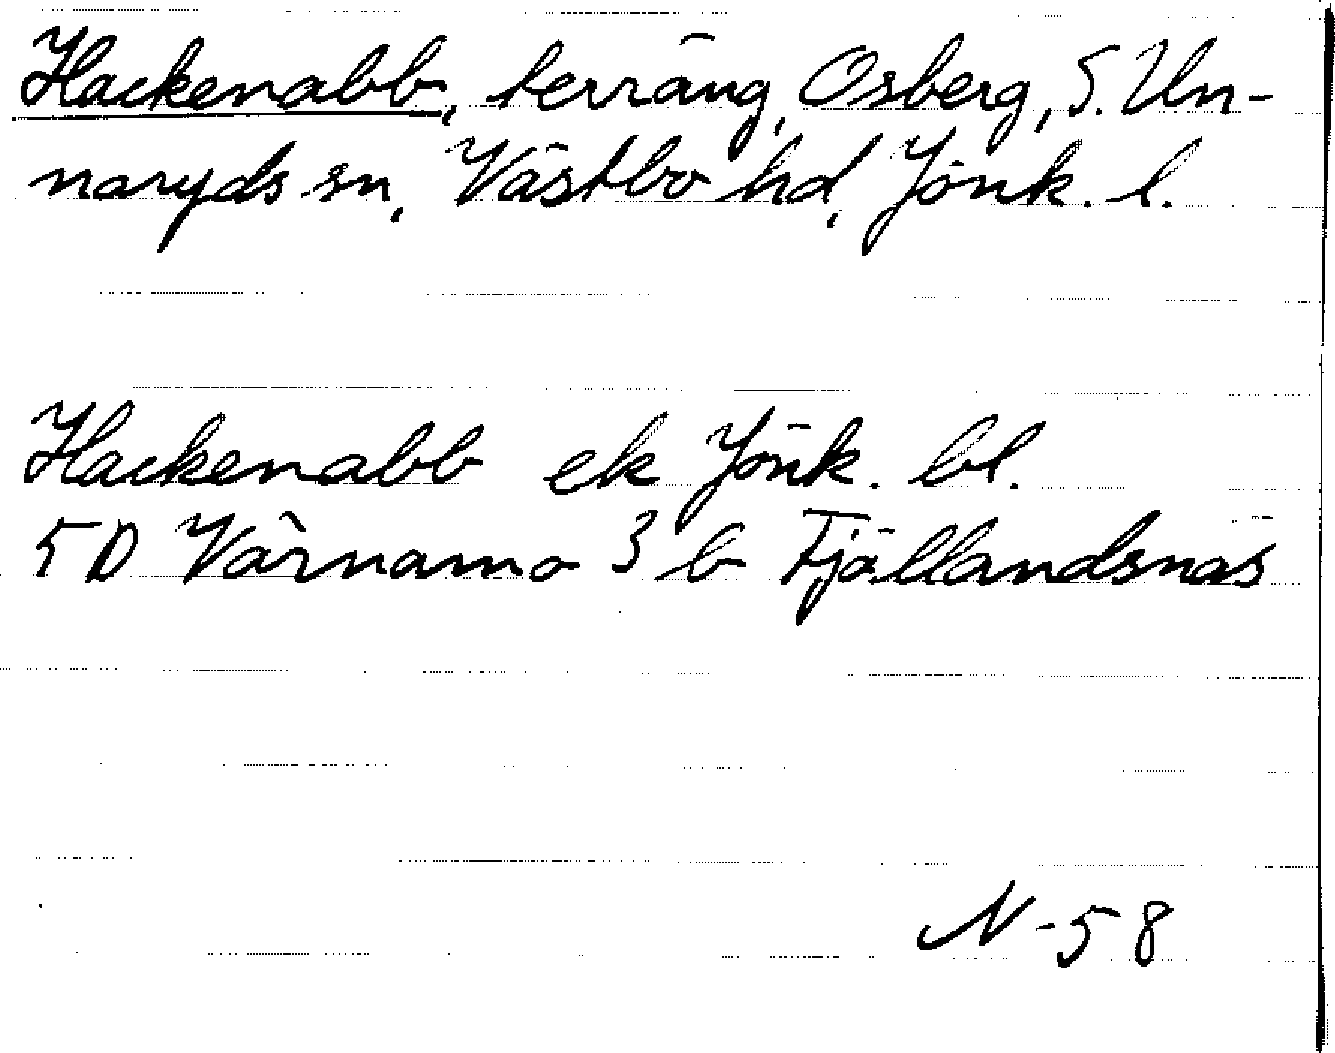 Hackenabb, terräng, Osberg, S. Un-
naryds sn, Västbo hd, Jönk. l.
Hackenabb ek Jönk. bl.
5D Värnamo 3 b Fjällandsnäs
N-58